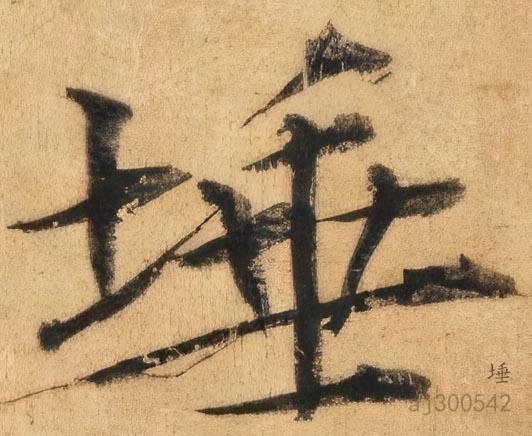 埵
埵
aj300542